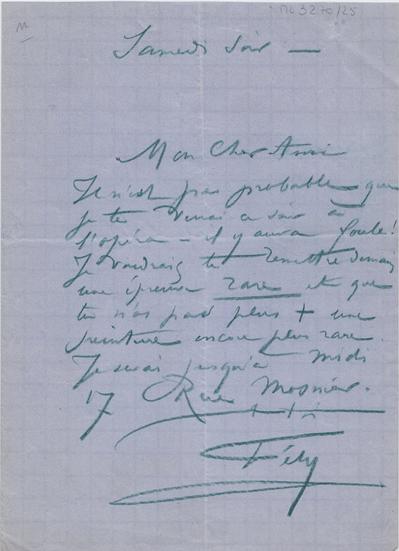 M
ML 3270/25
Samedi soir —
Mon Cher Ami
Il n'est pas probable que
je te verrai ce soir à
l'opéra – il y aura foule!
Je voudrais te remettre demain
une épreuve rare et que
tu n'as pas plus + une
peinture encore plus rare.
Je serai jusqu'à midi
17 Rue Mosnier.
Fély